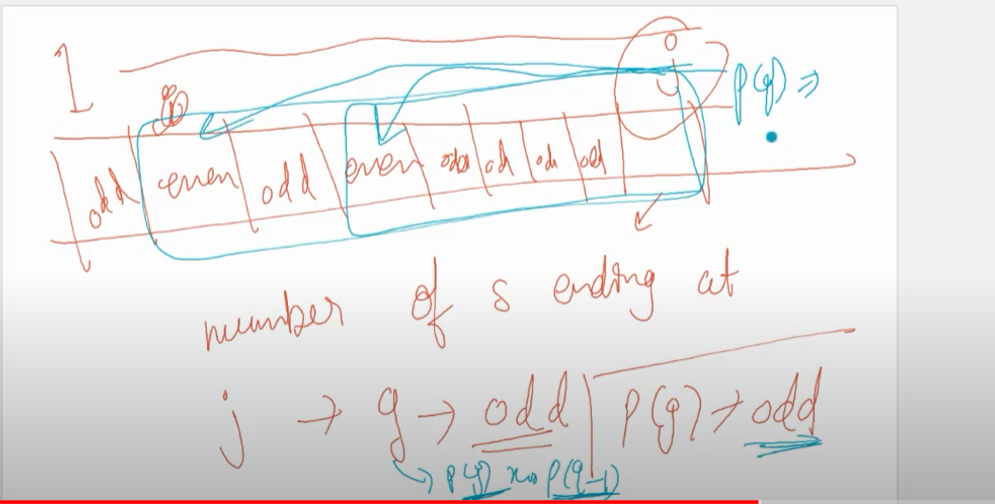 1
P(g) =>
odd even odd even odd odd odd odd
number of s ending at
j → g → odd | P(g) → odd
P(g) xor P(g-1)